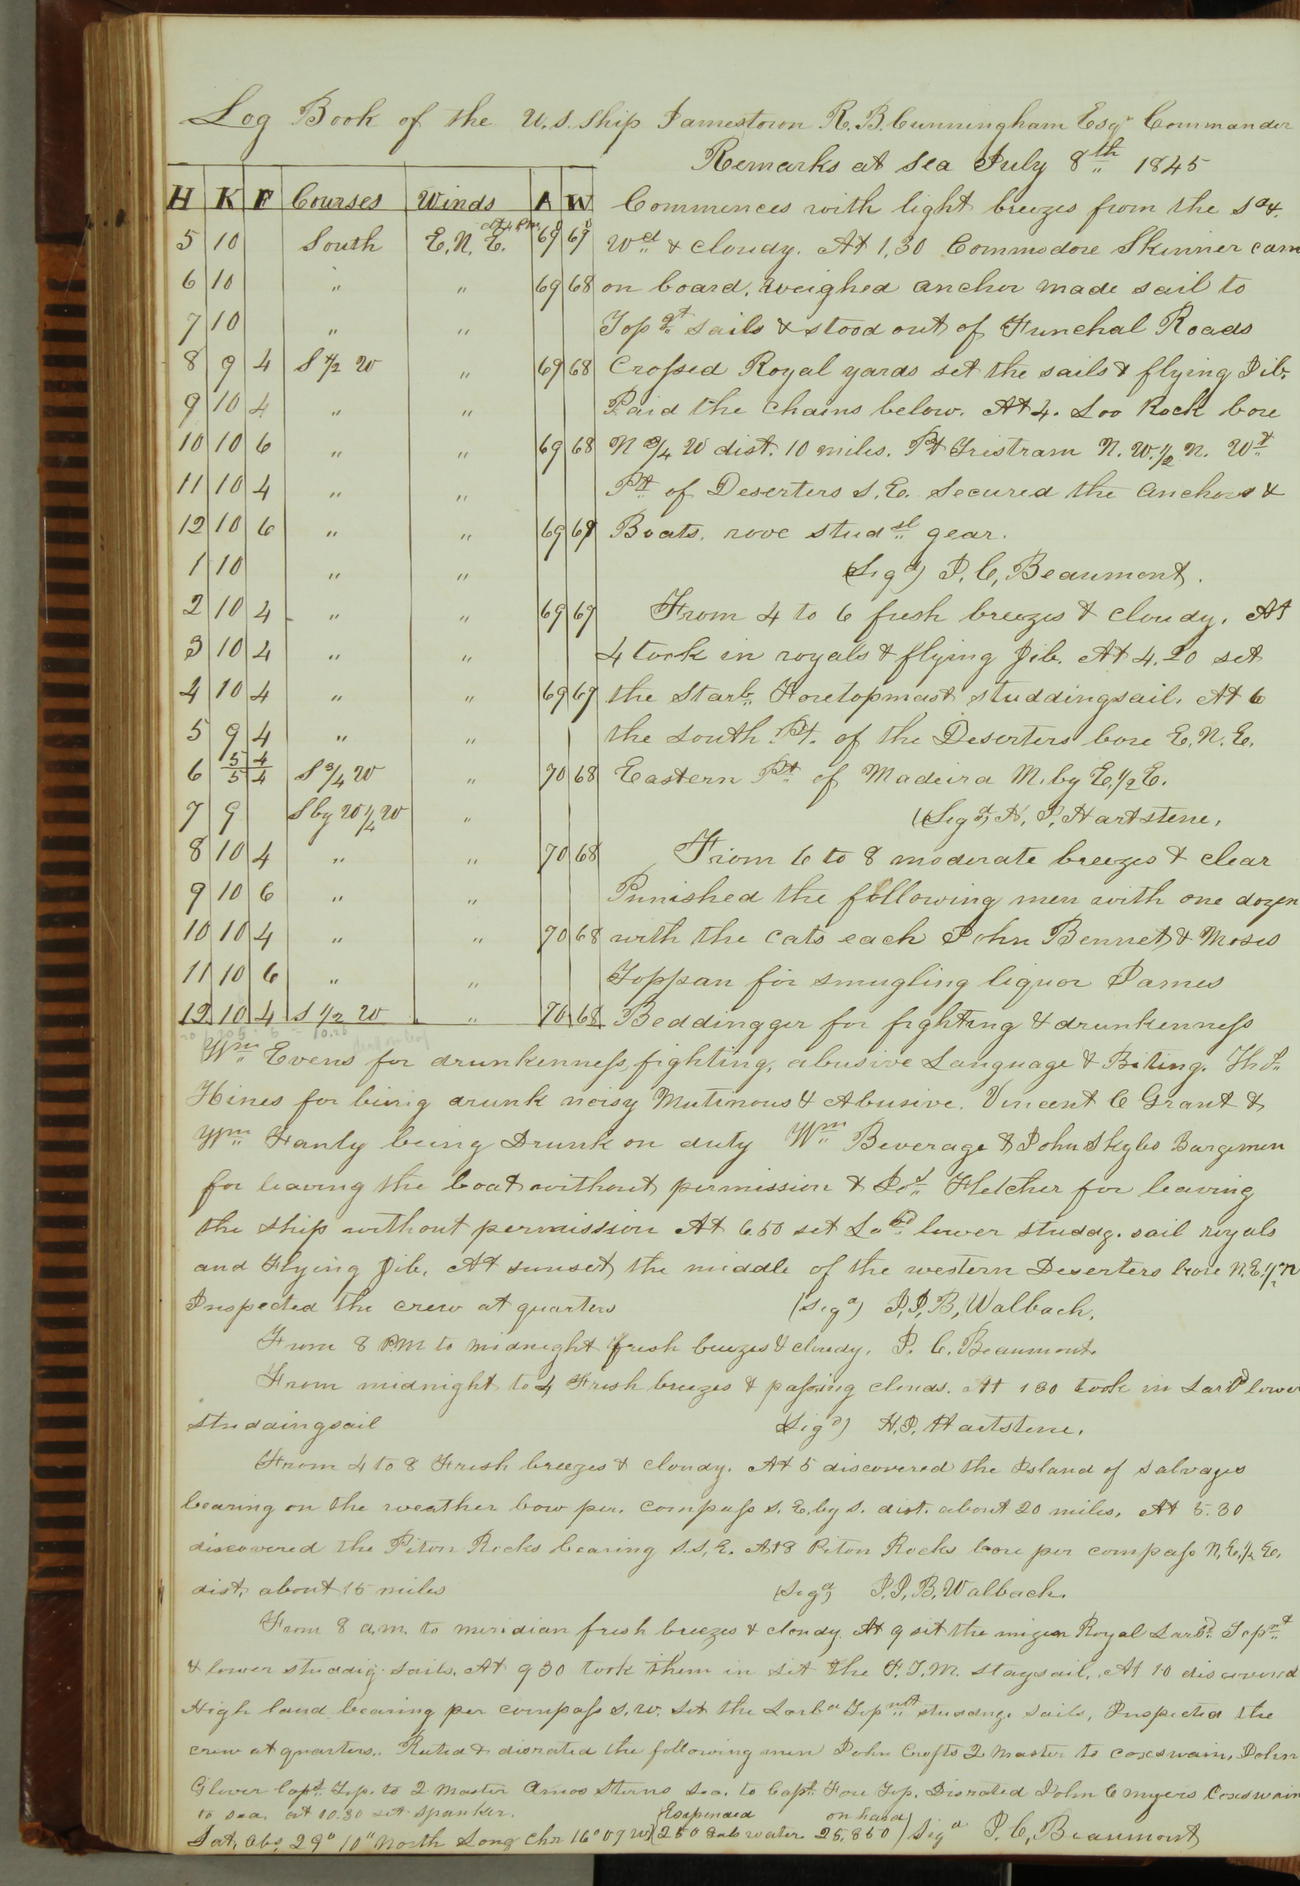 Log Book of the U.S. Ship Jamestown R. B. Cunningham Esqr Commander
Remarks at Sea July 8th 1845
H K F Courses Winds A W Commences with light breezes from the Sd &
5 10 South E. N. E. 69 69 Wd & cloudy. At 1,30 Commodore Skinner cam
6 10 " " 69 68 on board, weighed anchor made sail to
7 10 " " Top gt sails & stood out of Funchal Roads
8 9 4 S 1/2 W " 69 68 Crossed Royal yards set the sails & flying Jib.
9 10 4 " " Paid the chains below. At 4. Loo Rock bore
10 10 6 " " 69 68 N 3/4 W dist. 10 miles. Pt Tristram N. W. 1/2 N. Wt
11 10 4 " " Pt of Deserters S. E. Secured the anchors &
12 10 6 " " 69 69 Boats. rove studsl gear.
1 10 " " (Sigd) J. C. Beaumont.
2 10 4 " " 69 69 From 4 to 6 fresh breezes & cloudy. At
3 10 4 " " 4 took in royals & flying Jib. At 4.20 set
4 10 4 " " 69 69 the Starb. Foretopmast studdingsail. At 6
5 9 4 " " the South. Pt. of the Deserters bore E. N. E.
6 5 4 5 4 S 3/4 W " 70 68 Eastern Pt of Madeira N. by E. 1/2 E.
7 9 S by W 1/4 W " (Sigd) H. J. Hartstene.
8 10 4 " " 70 68 From 6 to 8 moderate breezes & clear
9 10 6 " " Punished the following men with one dozen
10 10 4 " " 70 68 with the cats each John Bennet & Moses
11 10 6 " " Toppan for smugling liquor James
12 10 4 S 1/2 W " 70 68 Beddingger for fighting & drunkenness
Wm Evens for drunkenness, fighting, abusive Language & Biting. Thos
Hines for being drunk noisy Mutinous & Abusive. Vincent C Grant &
Wm Hanly being Drunk on duty Wm Beverage & John Skyles Bargemen
for leaving the boat without permission & Jos Fletcher for leaving
the ship without permission At 6.50 set Lad lower studdg. sail royals
and Flying Jib. At sunset, the middle of the western Deserters bore N.E. 1/2 N
Inspected the crew at quarters (Sigd) J. J. B. Walbach.
From 8 P.M to midnight fresh breezes & cloudy. J. C. Beaumont.
From midnight to 4 Fresh breezes & passing clouds. At 1 30 took in Larbd lower
studdingsail Sigd) H. J. Hartstene.
From 4 to 8 Fresh breezes & cloudy. At 5 discovered the Island of Salvages
bearing on the weather bow per. compass S. E. by S. dist. about 20 miles. At 5.30
discovered the Piton Rocks bearing S. S. E. At 8 Piton Rocks bore per compass N. E. 1/2 E.
dist. about 15 miles (Sigd) J. J. B. Walbach.
From 8 a.m. to meridian fresh breezes & cloudy At 9 set the mizen Royal Larbd. Topmt
& lower studdig. sails. At 9 30 took them in set the F. T. M. staysail. At 10 discovered
High land bearing per compass S. W. Set the Larbd Topmt studdng. sails. Inspected the
crew at quarters. Rated & disrated the following men John Crofts 2 Master to coxswain, John
Glover Capt. Top. to 2 Master Amos Sterns Sea. to Capt. Fore Top. Disrated John C Myers Coxswain
to Sea. at 10.30 set spanker. Expended on hand
Lat. Obs. 29° 10" North Long Chr 16° 09 W) (250 Gals water 25,850) Sigd J. C. Beaumont